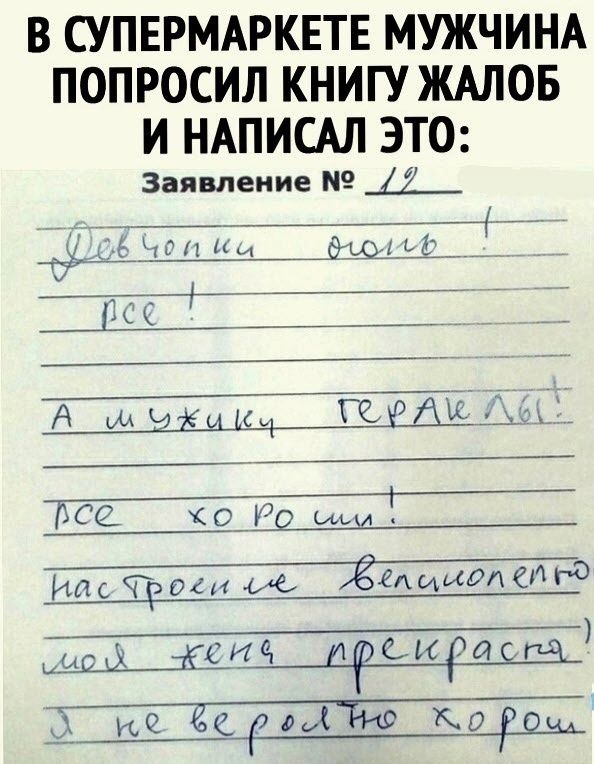 В СУПЕРМАРКЕТЕ МУЖЧИНА
ПОПРОСИЛ КНИГУ ЖАЛОБ
И НАПИСАЛ ЭТО:
Заявление № 12
Девчонки огонь !
все !
А мужики ГЕРАКЛЫ!
все хороши!
настроение великолепно
моя жена прекрасна!
Я не вероятно хорош